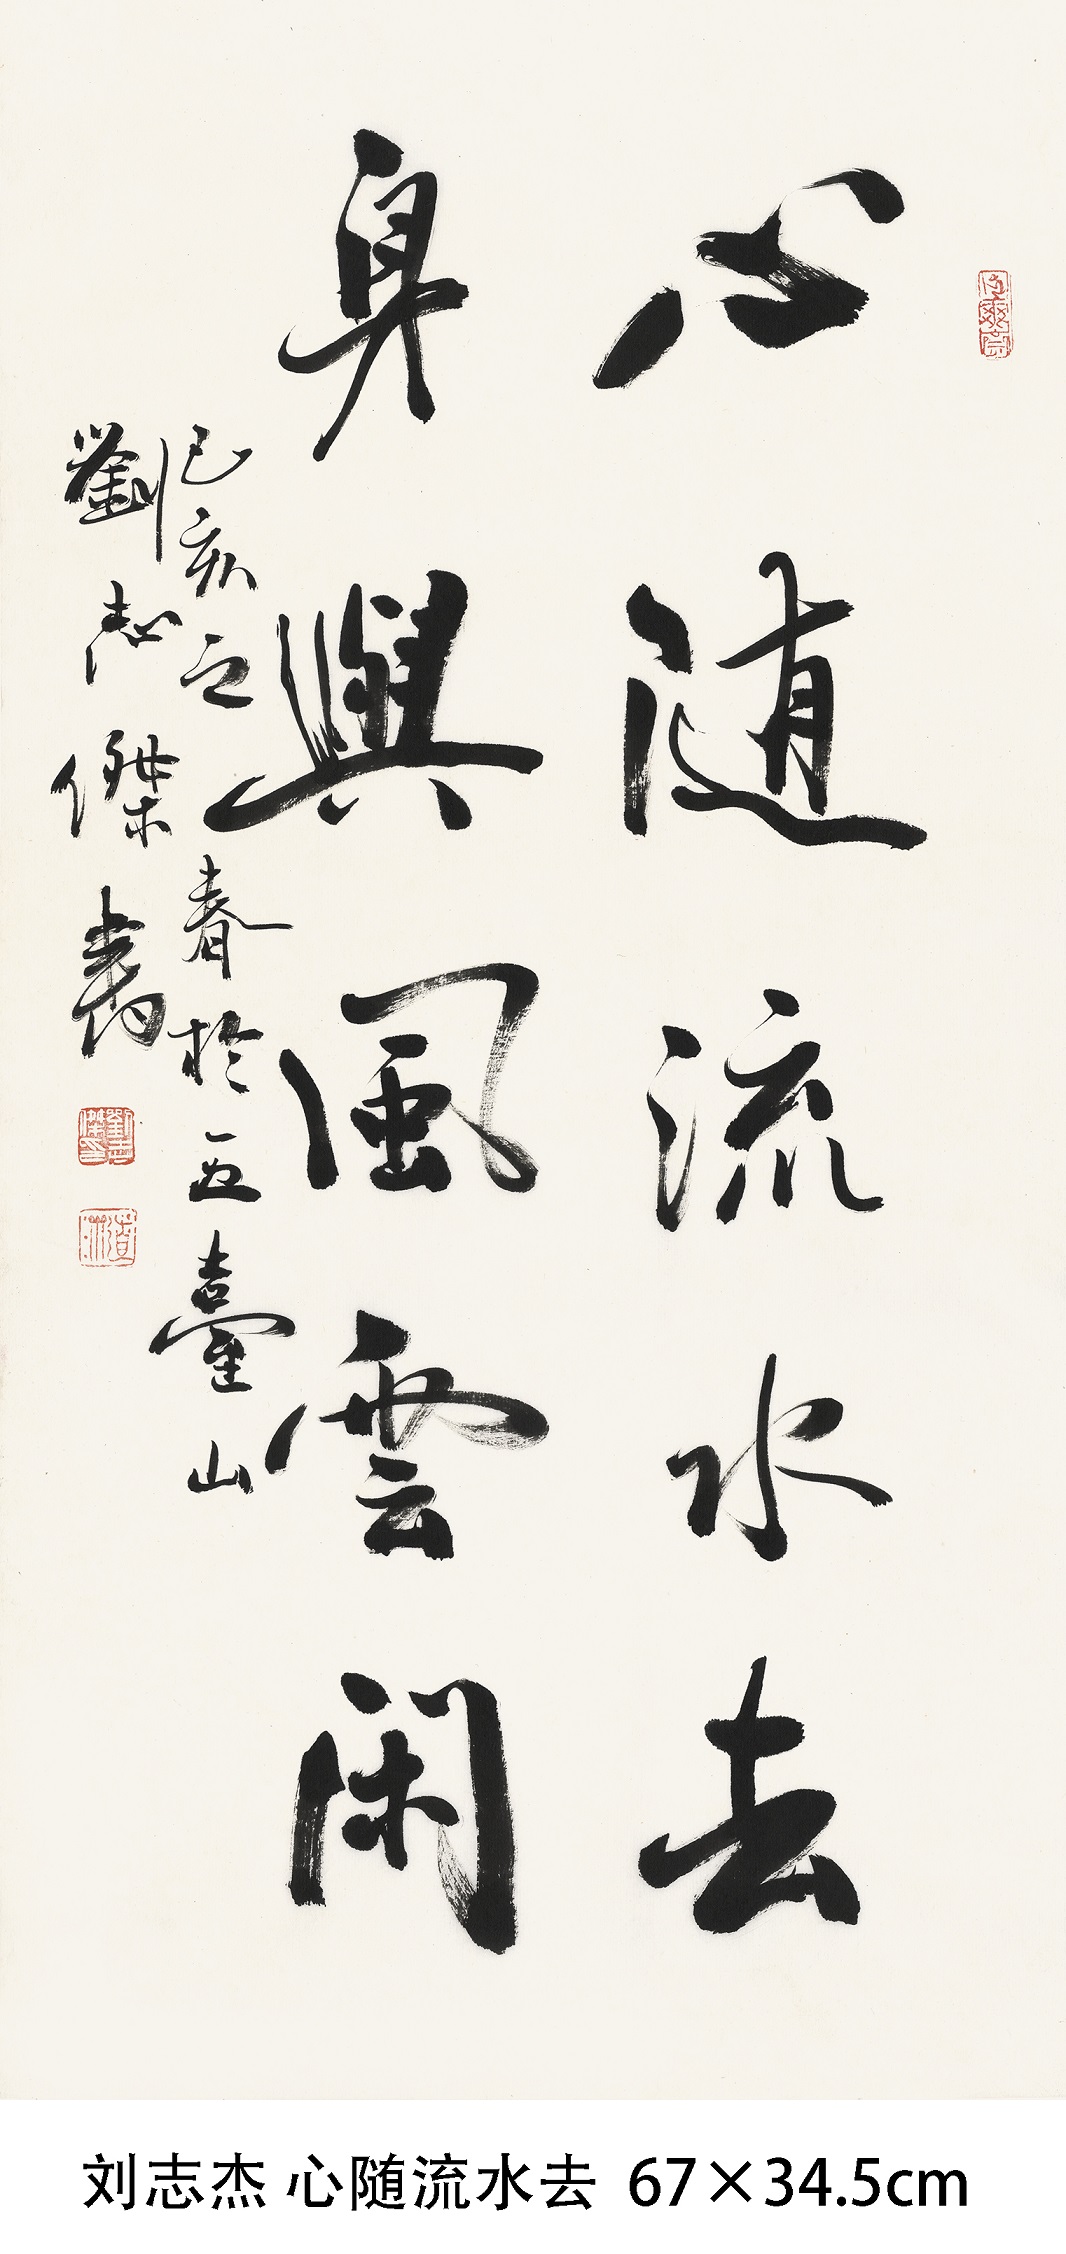 心随流水去
身與風雲閑
己亥之春於五臺山
劉志傑書
刘志杰 心随流水去 67×34.5cm